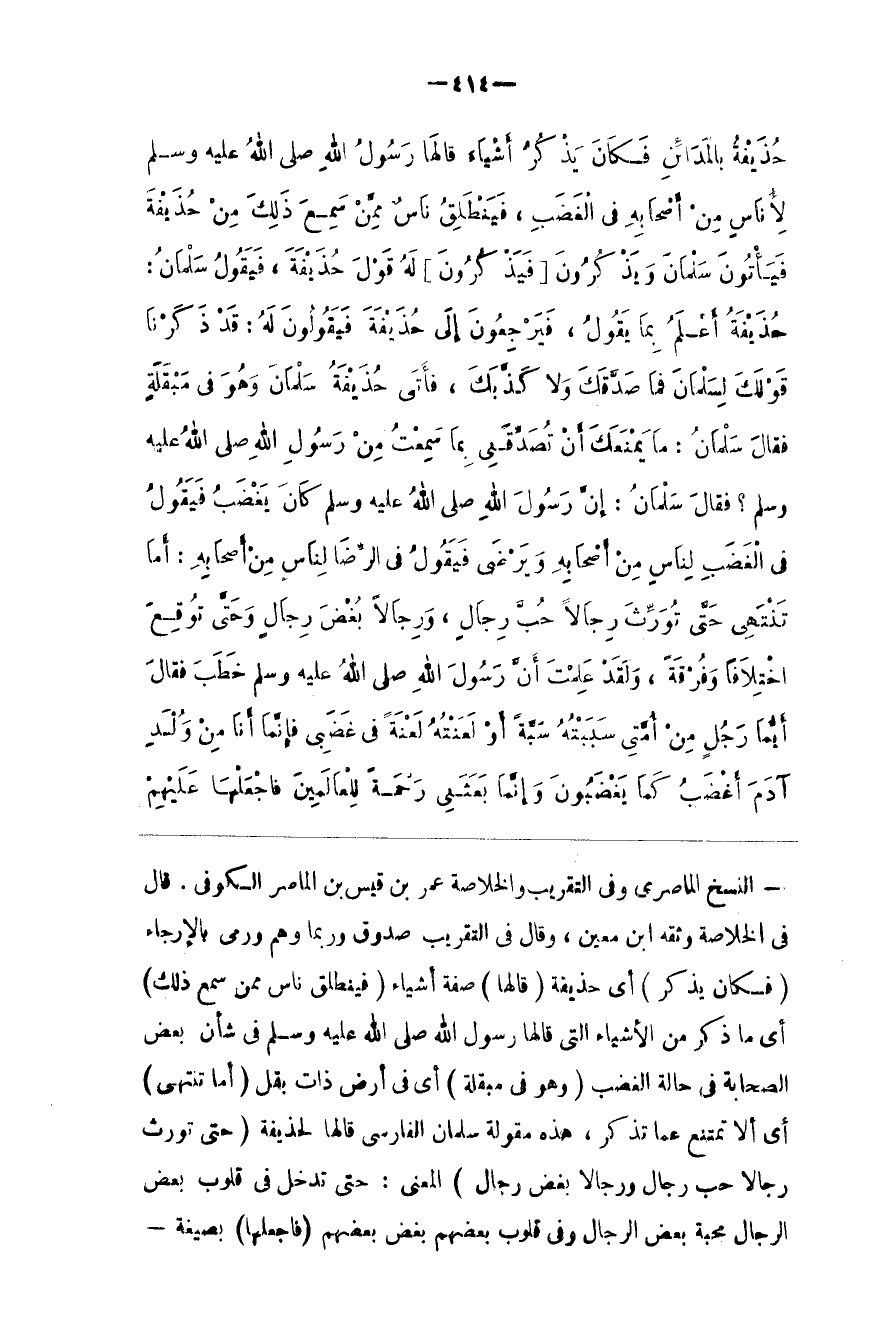 —٤١٤—
حُذَيْفَةُ بِالْمَدَائِنِ فَـكَانَ يَذْكُرُ أَشْيَاءَ قالَهَا رَسُولُ اللهِ صلى اللهُ عليه وسـلم
لِأُنَاسٍ مِنْ أَصْحَابِهِ فِى الْغَضَبِ ، فَيَنْطَلِقُ ناسٌ مِمَّنْ سَمِـعَ ذَلِكَ مِنْ حُذَيْفَةَ
فَيَـأْتُونَ سَلْمَانَ وَيَذْكُرُونَ [ فَيَذْكُرُونَ ] لَهُ قَوْلَ حُذَيْفَةَ ، فَيَقُولُ سَلْمَانُ :
حُذَيْفَةُ أَعْـلَمُ بِمَا يَقُولُ ، فَيَرْجِعُونَ إِلَى حُذَيْفَةَ فَيَقُولُونَ لَهُ : قَدْ ذَكَرْنَا
قَوْلَكَ لِسَلْمَانَ فَمَا صَدَّقَكَ وَلا كَذَّبَكَ ، فأَتَى حُذَيْفَةُ سَلْمَانَ وَهُوَ فى مَبْقَلَةٍ
فقالَ سَلْمَانُ : ما يَمْنَعُكَ أَنْ تُصَدِّقَـنِى بِمَا سَمِعْتُ مِنْ رَسُولِ اللهِ صلى اللهُ عليه
وسلم ؟ فقالَ سَلْمَانُ : إِنَّ رَسُولَ اللهِ صلى اللهُ عليه وسلم كانَ يَغْضَبُ فَيَقُولُ
فى الْغَضَبِ لِناسٍ مِنْ أَصْحَابِهِ وَيَرْضَى فَيَقُولُ فى الرِّضَا لِناسٍ مِنْ أصحابِهِ : أَما
تَنْتَهِى حَتَّى تُوَرِّثَ رِجالاً حُبَّ رِجالٍ ، وَرِجالاً بُغْضَ رِجالٍ وَحَتَّى تُوقِـعَ
اخْتِلاَفاً وَفُرْقَةً ، وَلَقَدْ عَلِمْتَ أَنَّ رَسُولَ اللهِ صلى اللهُ عليه وسلم خَطَبَ فقالَ
أَيُّمَا رَجُلٍ مِنْ أُمَّتِى سَبَبْتُهُ سَبَّةً أَوْ لَعَنْتُهُ لَعْنَةً فى غَضَبِى فإِنَّمَا أَنا مِنْ وَلَـدِ
آدَمَ أَغْضَبُ كَمَا يَغْضَبُونَ وَإِنَّمَا بَعَثَـنِى رَحْمَـةً لِلْعَالَمِينَ فاجْعَلْهَا عَلَيْهِمْ
— النسخ الماصرى وفى التقريب والخلاصة عمر بن قيس بن الماصر الـكوفى . قال
فى الخلاصة وثقه ابن معين ، وقال فى التقريب صدوق وربما وهم ورمى بالإرجاء
( فـكان يذكر ) أى حذيفة ( قالها ) صفة أشياء ( فينطلق ناس ممن سمع ذلك)
أى ما ذكر من الأشياء التى قالها رسول الله صلى الله عليه وسـلم فى شأن بعض
الصحابة فى حالة الغضب ( وهو فى مبقلة ) أى فى أرض ذات بقل ( أما تنتهى )
أى ألا تمتنع عما تذكر ، هذه مقولة سلمان الفارسى قالها لحذيفة ( حتى تورث
رجالا حب رجال ورجالا بغض رجال ) المعنى : حتى تدخل فى قلوب بعض
الرجال محبة بعض الرجال وفى قلوب بعضهم بغض بعضهم (فاجعلها) بصيغة —